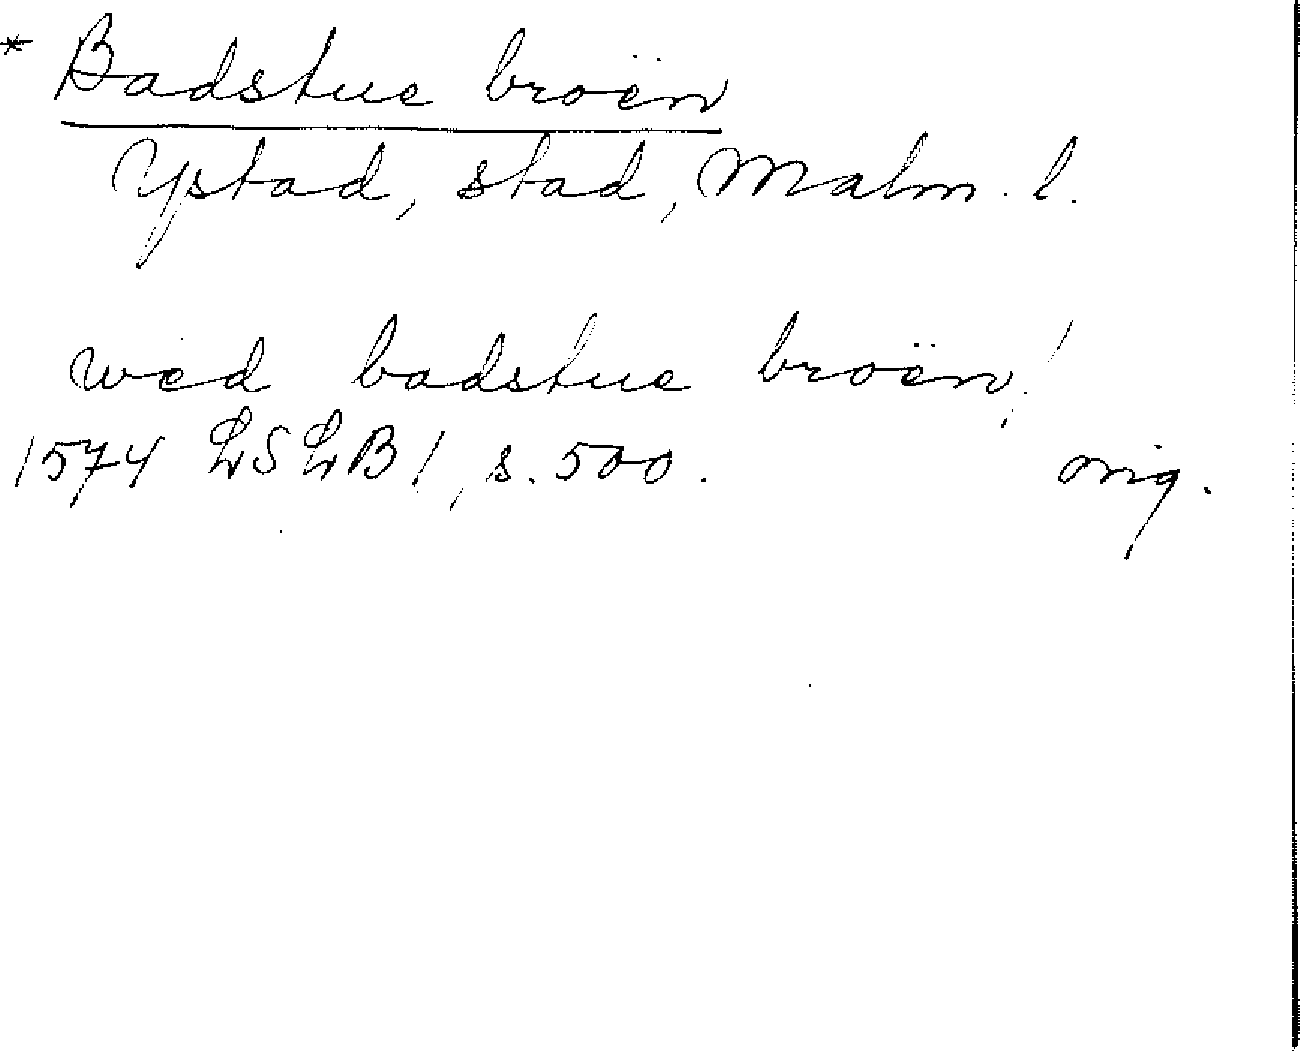 * Badstue broën
Ystad, stad, Malm. l.
wed badstue broën!
1574 LSLB 1, s. 500. orig.